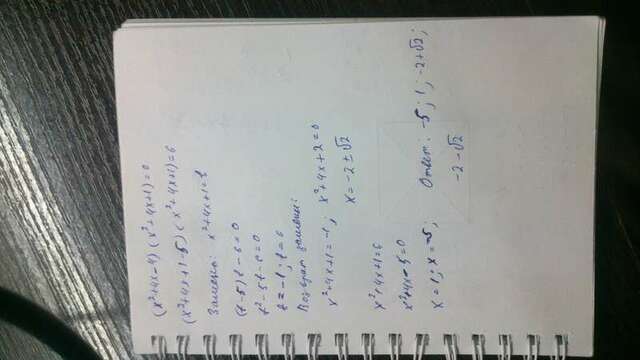 (x²+4x-4)(x²+4x+1)=6
(x²+4x+1-5)(x²+4x+1)=6
Замена: x²+4x+1=t
(t-5)t-6=0
t²-5t-6=0
t=-1; t=6
Возврат замены:
x²+4x+1=-1; x²+4x+2=0
x=-2±√2
x²+4x+1=6
x²+4x-5=0
x=1; x=-5;
Ответ: -5; 1; -2+√2;
-2-√2